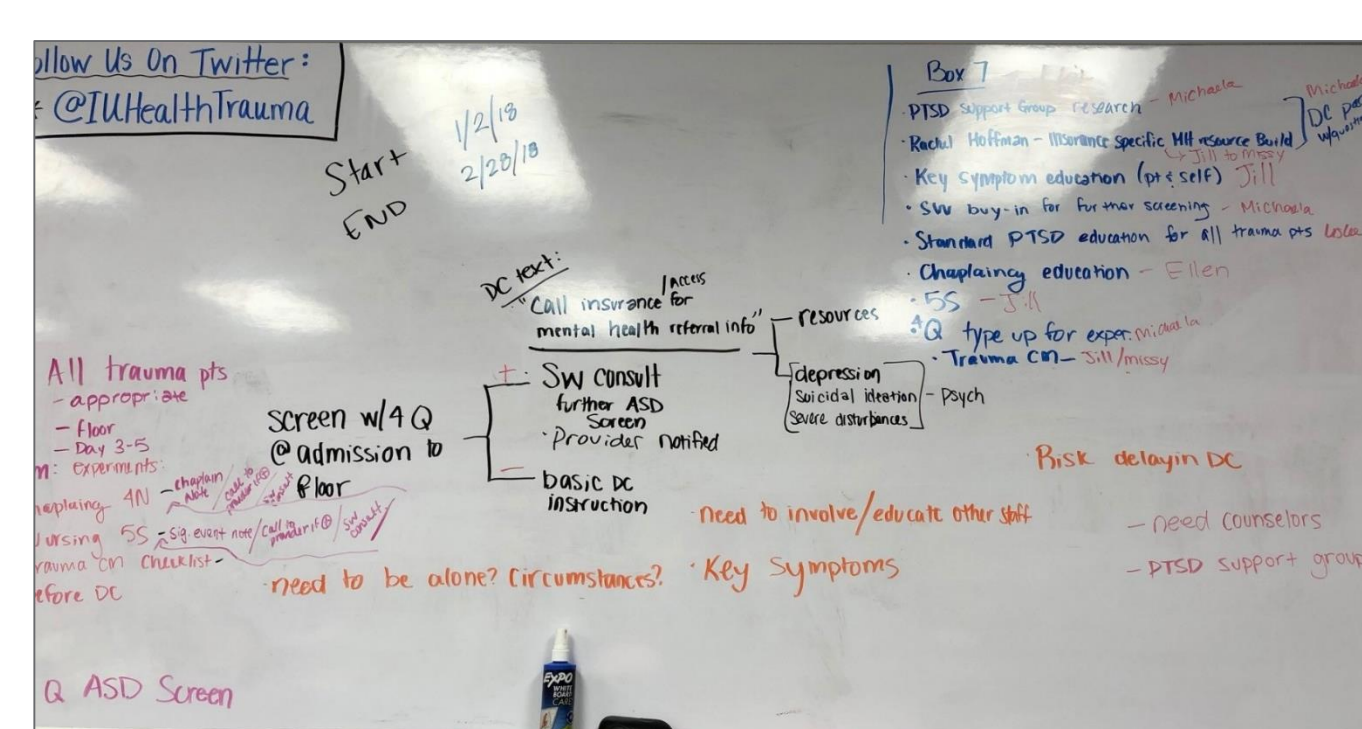 ollow Us On Twitter:
@IUHealthTrauma
Start 1/2/18
END 2/28/18
Box 7
· PTSD Support Group research - Michaela
· Rachel Hoffman - Insurance Specific MH resource Build
↳ Jill to missy
Michaela
DC
· Key symptom education (pt & self) Jill
· SW buy-in for further screening - Michaela
· Standard PTSD education for all trauma pts
· Chaplaincy education - Ellen
· 5S - Jill
· 4Q type up for exper. Michaela
· Trauma CM - Jill/missy
DC text:
/Access
"Call insurance for
mental health referral info"
resources
depression
Suicidal ideation
Severe disturbances
- Psych
All trauma pts
- appropriate
- floor
- Day 3-5
m: experiments:
haplaing 4N - chaplain note / call to provider if ⊕ / SW consult
ursing 5S - Sig. event note / call to provider if ⊕ / SW consult
rauma CM Checklist -
efore DC
Screen w/4 Q
@ admission to
floor
+
· SW consult
further ASD
Screen
· Provider notified
-
basic DC
instruction
Risk delayin DC
- need counselors
- PTSD support group
· need to involve/educate other staff
· need to be alone? Circumstances?
· Key Symptoms
Q ASD Screen
EXPO
WHITE
BOARD
CARE